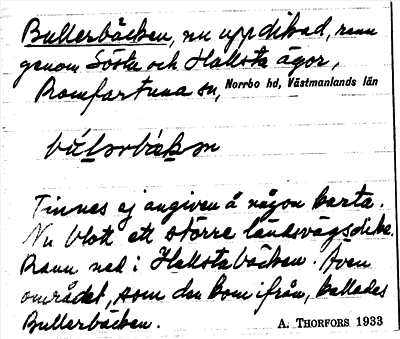 Bullerbäcken, nu uppdikad, rann
genom Sösta och Hallsta ägor,
Romfartuna sn, Norrbo hd, Västmanlands län
bùl̲orbäk̲ən
Finnes ej angiven å någon karta.
Nu blott ett större landsvägsdike.
Rann ned i Hallstabäcken. Även
området, som den kom ifrån, kallades
Bullerbäcken.
A. THORFORS 1933